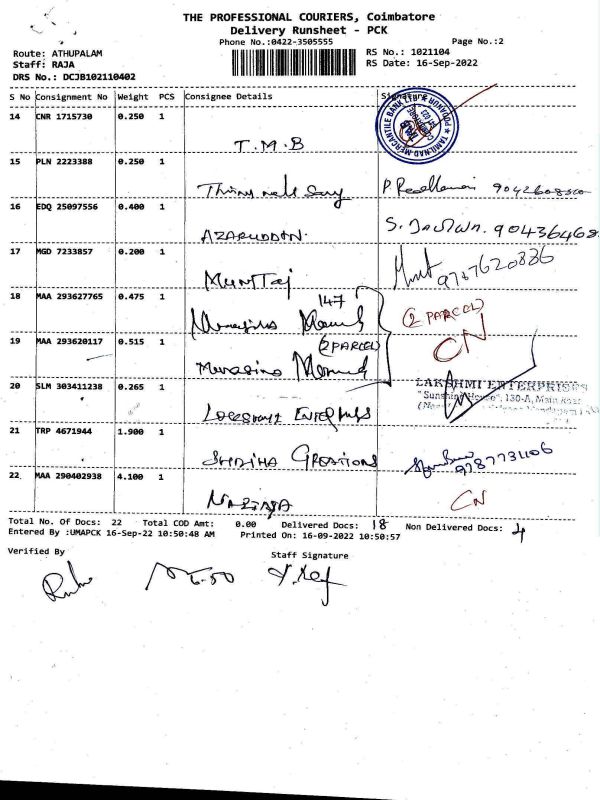 THE PROFESSIONAL COURIERS, Coimbatore
Delivery Runsheet - PCK
Phone No.:0422-3505555
Page No.:2
Route: ATHUPALAM
Staff: RAJA
DRS No.: DCJB102110402
RS No.: 1021104
RS Date: 16-Sep-2022
S No Consignment No Weight PCS Consignee Details Signature
14 CNR 1715730 0.250 1
T.M.B
TAMILNAD MERCANTILE BANK LTD
15 PLN 2223388 0.250 1
16 EDQ 25097556 0.400 1
AZARUDDIN.
17 MGD 7233857 0.200 1
MUMTAJ
9787620886
18 MAA 293627765 0.475 1
147
(2 PARCEL)
CN
19 MAA 293620117 0.515 1
(2 PARCEL)
20 SLM 303411238 0.265 1
LAKSHMI ENTERPRISES
"Sunshine House", 130-A, Main Road
21 TRP 4671944 1.900 1
9787731106
22 MAA 290402938 4.100 1
CN
Total No. Of Docs: 22 Total COD Amt: 0.00 Delivered Docs: 18 Non Delivered Docs: 4
Entered By :UMAPCK 16-Sep-22 10:50:48 AM Printed On: 16-09-2022 10:50:57
Verified By Staff Signature
6.50